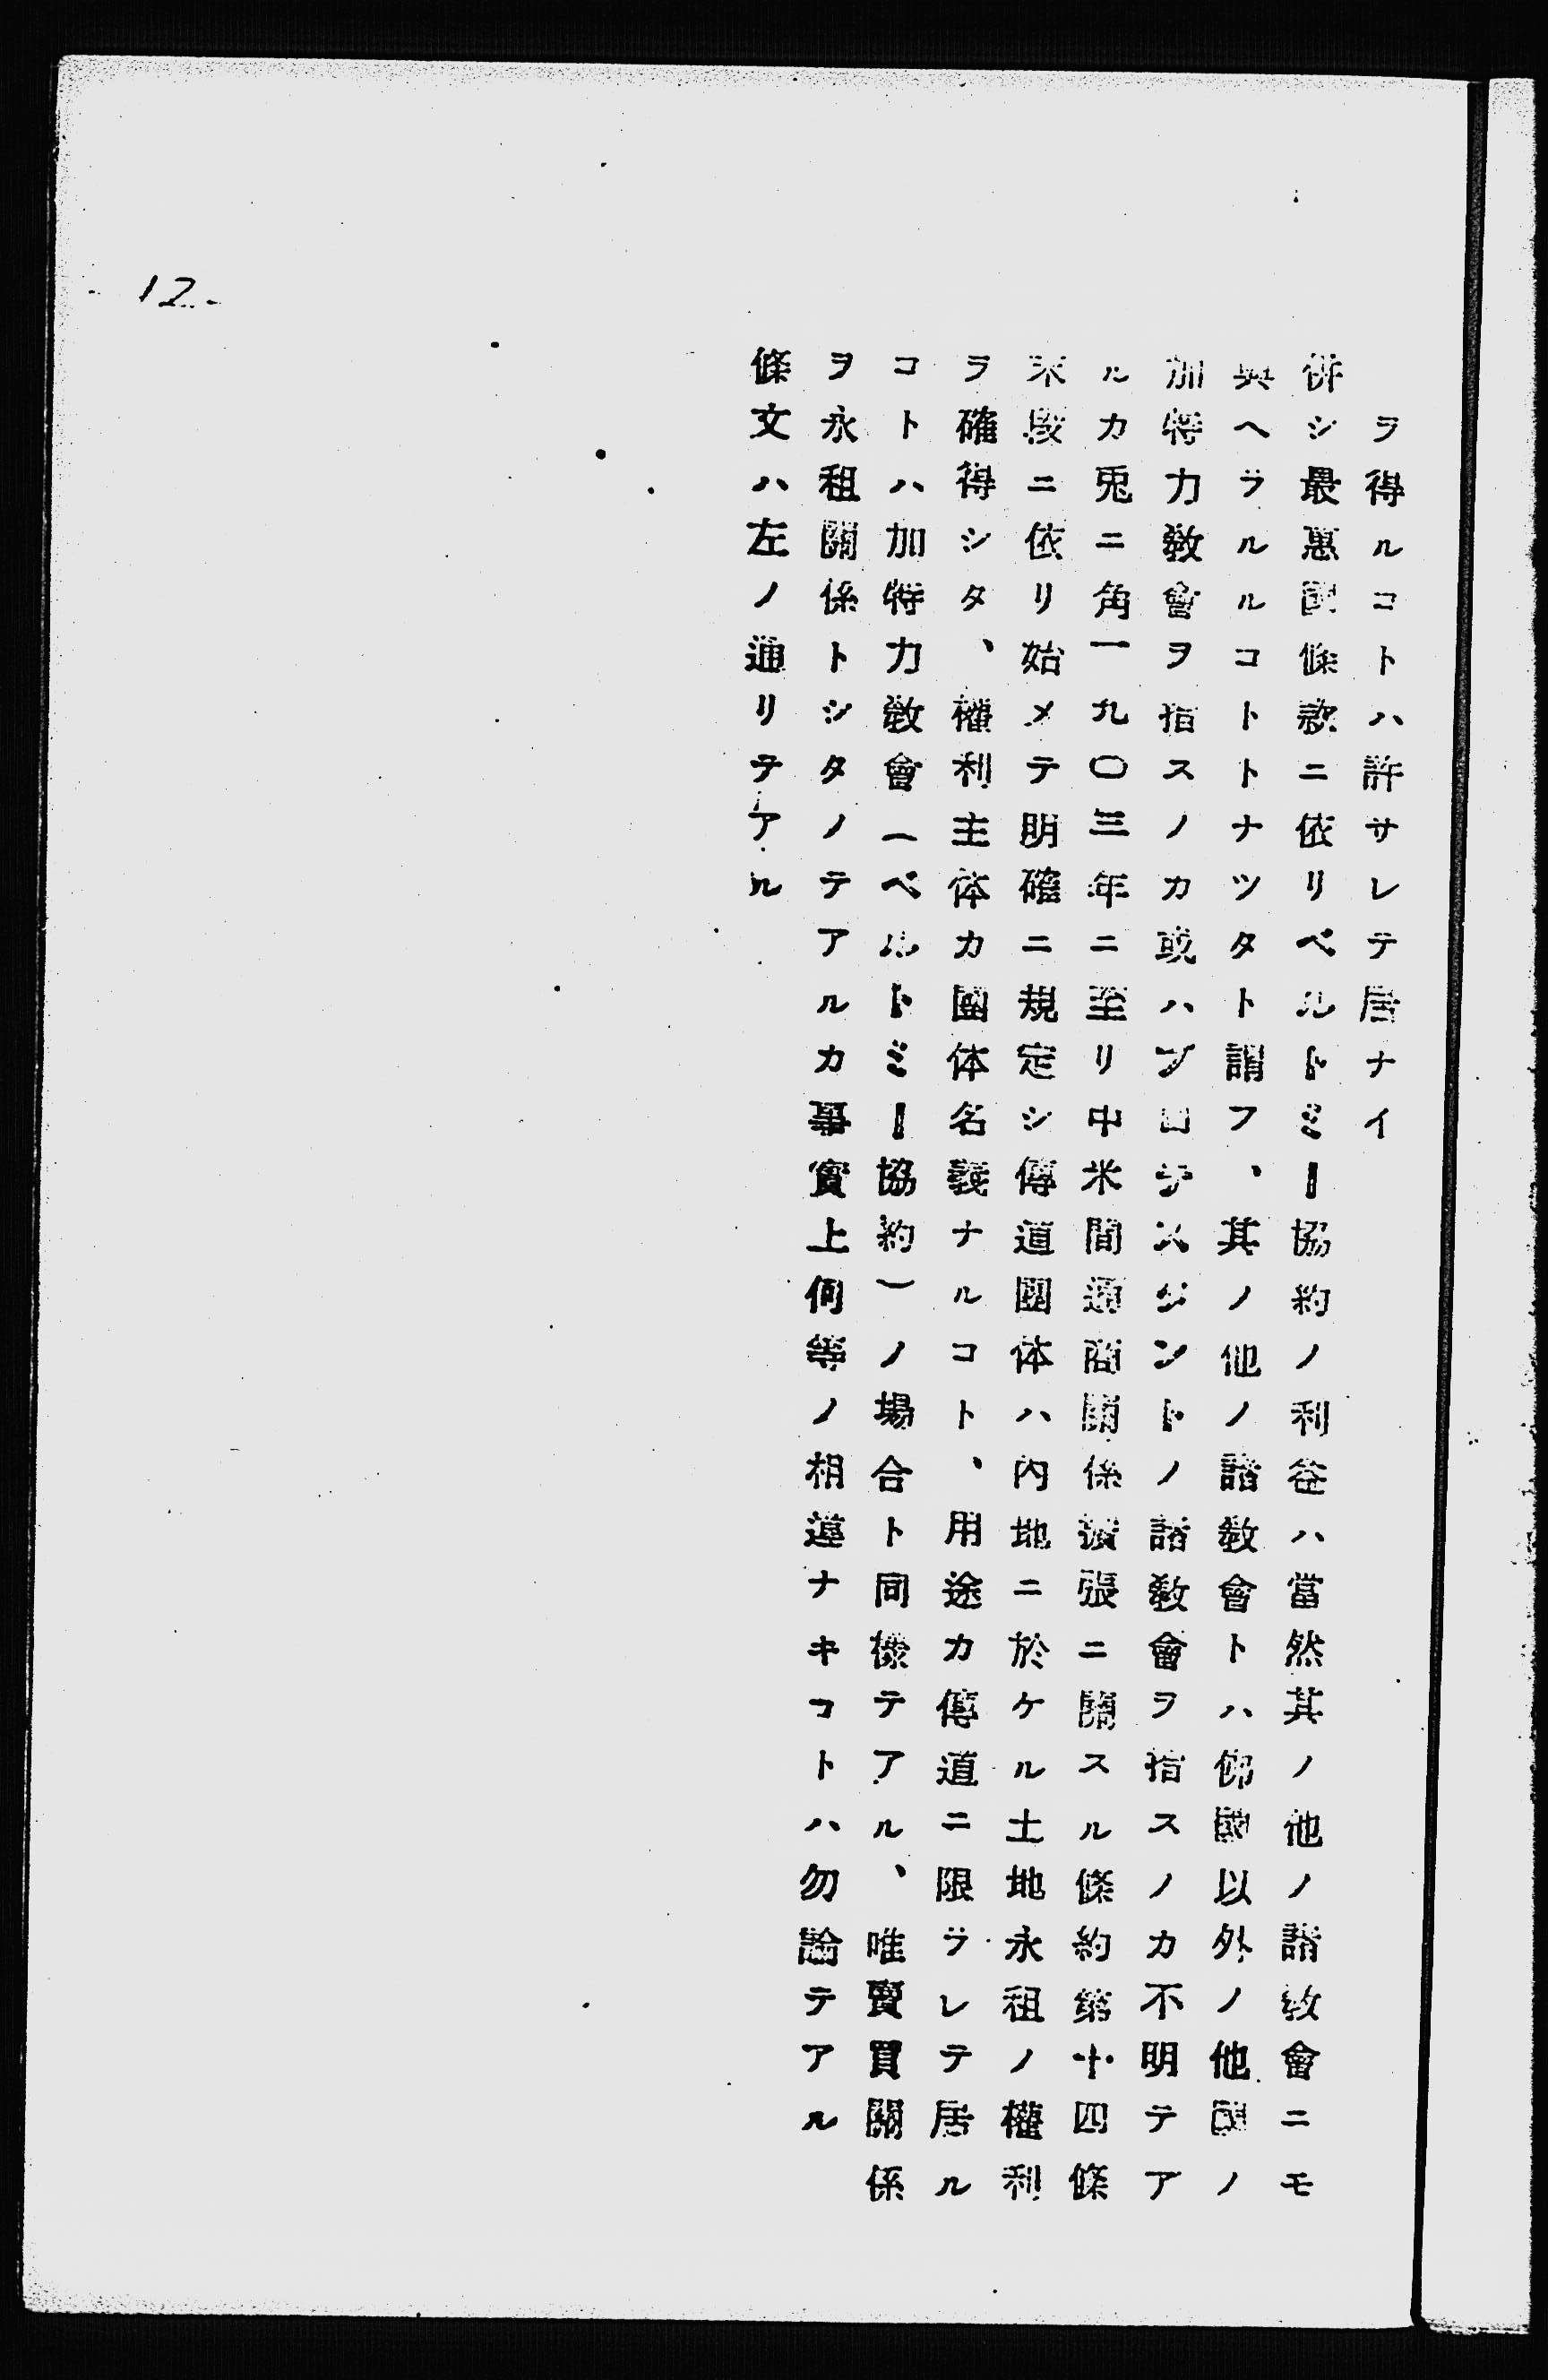 ヲ得ルコトハ許サレテ居ナイ
併シ最惠國條款ニ依リベルトミー協約ノ利益ハ當然其ノ他ノ諸敎會ニモ
與ヘラルルコトトナツタト謂フ、其ノ他ノ諸敎會トハ佛國以外ノ他國ノ
加特力敎會ヲ指スノカ或ハプロテスタントノ諸敎會ヲ指スノカ不明テア
ルカ兎ニ角一九〇三年ニ至リ中米間通商關係擴張ニ關スル條約第十四條
末段ニ依リ始メテ明確ニ規定シ傳道團体ハ內地ニ於ケル土地永租ノ權利
ヲ確得シタ、權利主体カ團体名義ナルコト、用途カ傳道ニ限ラレテ居ル
コトハ加特力敎會(ベルトミー協約)ノ場合ト同樣テアル、唯賣買關係
ヲ永租關係トシタノテアルカ事實上何等ノ相違ナキコトハ勿論テアル
條文ハ左ノ通リテアル
- 12 -